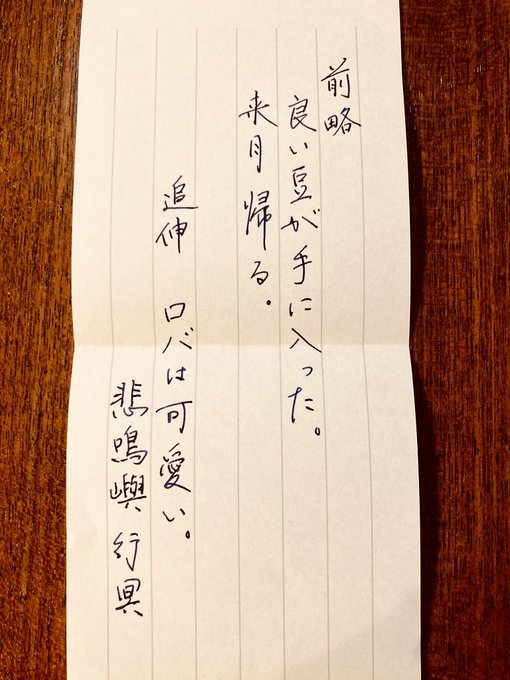 前略
良い豆が手に入った。
来月帰る。
追伸 ロバは可愛い。
悲鳴嶼 行冥